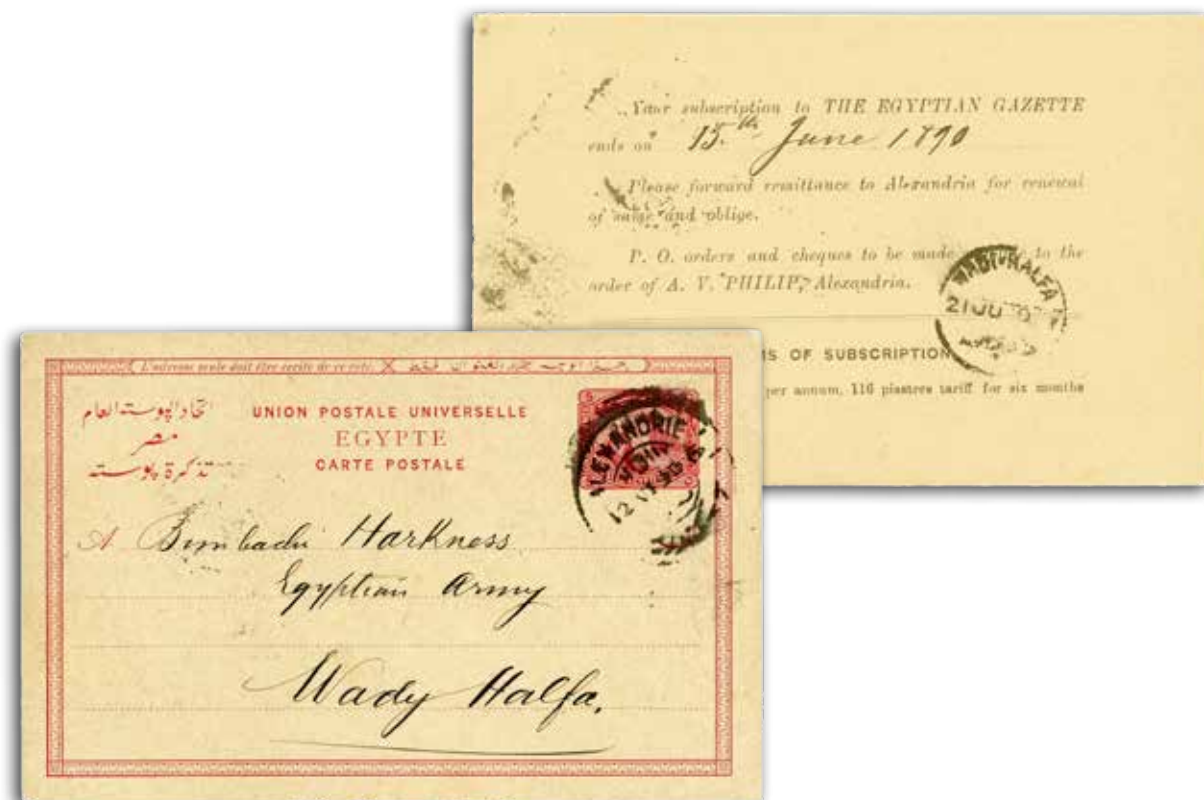 Your subscription to THE EGYPTIAN GAZETTE
ends on 15.th June 1890
Please forward remittance to Alexandria for renewal
of same and oblige.
P. O. orders and cheques to be made to the
order of A. V. PHILIP, Alexandria.
WADI-HALFA
21 JU
S OF SUBSCRIPTION
per annum, 116 piastres tariff for six months
L'adresse seule doit être écrite de ce côté.
اتحاد البوسته العام
مصر
تذكرة بوسته
UNION POSTALE UNIVERSELLE
EGYPTE
CARTE POSTALE
ALEXANDRIE
12 VI 90
A Bimbachi Harkness
Egyptian Army
Wady Halfa.